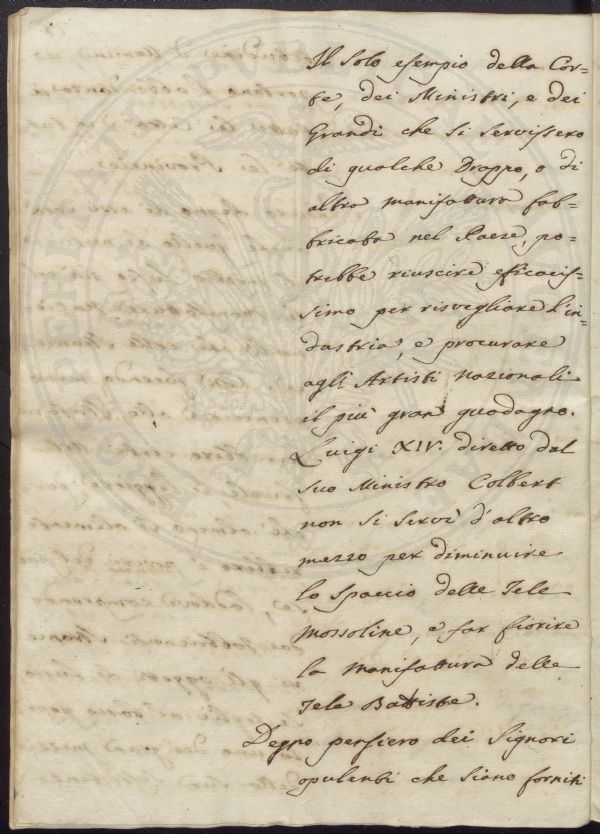 Il solo esempio della Cor=
te, dei Ministri, e dei
Grandi che si servissero
di qualche Drappo, o di
altra manifattura fab=
bricata nel Paese, po=
trebbe riuscire efficacis=
simo per risvegliare l'in=
dustria, e procurare
agli Artisti Nazionali
il più gran guadagno.
Luigi XIV. diretto dal
suo Ministro Colbert
non si servì d'altro
mezzo per diminuire
lo spaccio delle Tele
Mossoline, e far fiorire
la manifattura delle
Tele Battiste.
Degno pensiero dei Signori
opulenti che siano forniti